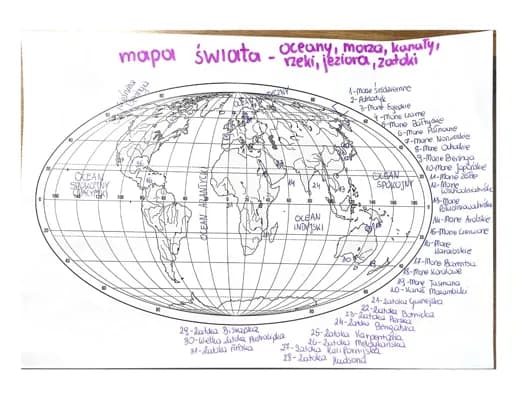 mapa świata - oceany, morza, kanały,
rzeki, jeziora, zatoki
OCEAN
SPOKOJNY
OCEAN ATLANTYCKI
OCEAN
INDYJSKI
OCEAN
SPOKOJNY
1-Morze Śródziemne
2-Adriatyk
3-Morze Egejskie
4-Morze Czarne
5-Morze Bałtyckie
6-Morze Północne
7-Morze Norweskie
8-Morze Ochockie
9-Morze Beringa
10-Morze Japońskie
11-Morze Żółte
12-Morze
Wschodniochińskie
13-Morze
Południowochińskie
14-Morze Arabskie
15-Morze Czerwone
16-Morze
Karaibskie
17-Morze Barentsa
18-Morze Koralowe
19-Morze Tasmana
20-Kanał Mozambicki
21-Zatoka Gwinejska
22-Zatoka Botnicka
23-Zatoka Perska
24-Zatoka Bengalska
25-Zatoka Karpentaria
26-Zatoka Meksykańska
27-Zatoka Kalifornijska
28-Zatoka Hudsona
29-Zatoka Biskajska
30-Wielka Zatoka Australijska
31-Zatoka Fińska